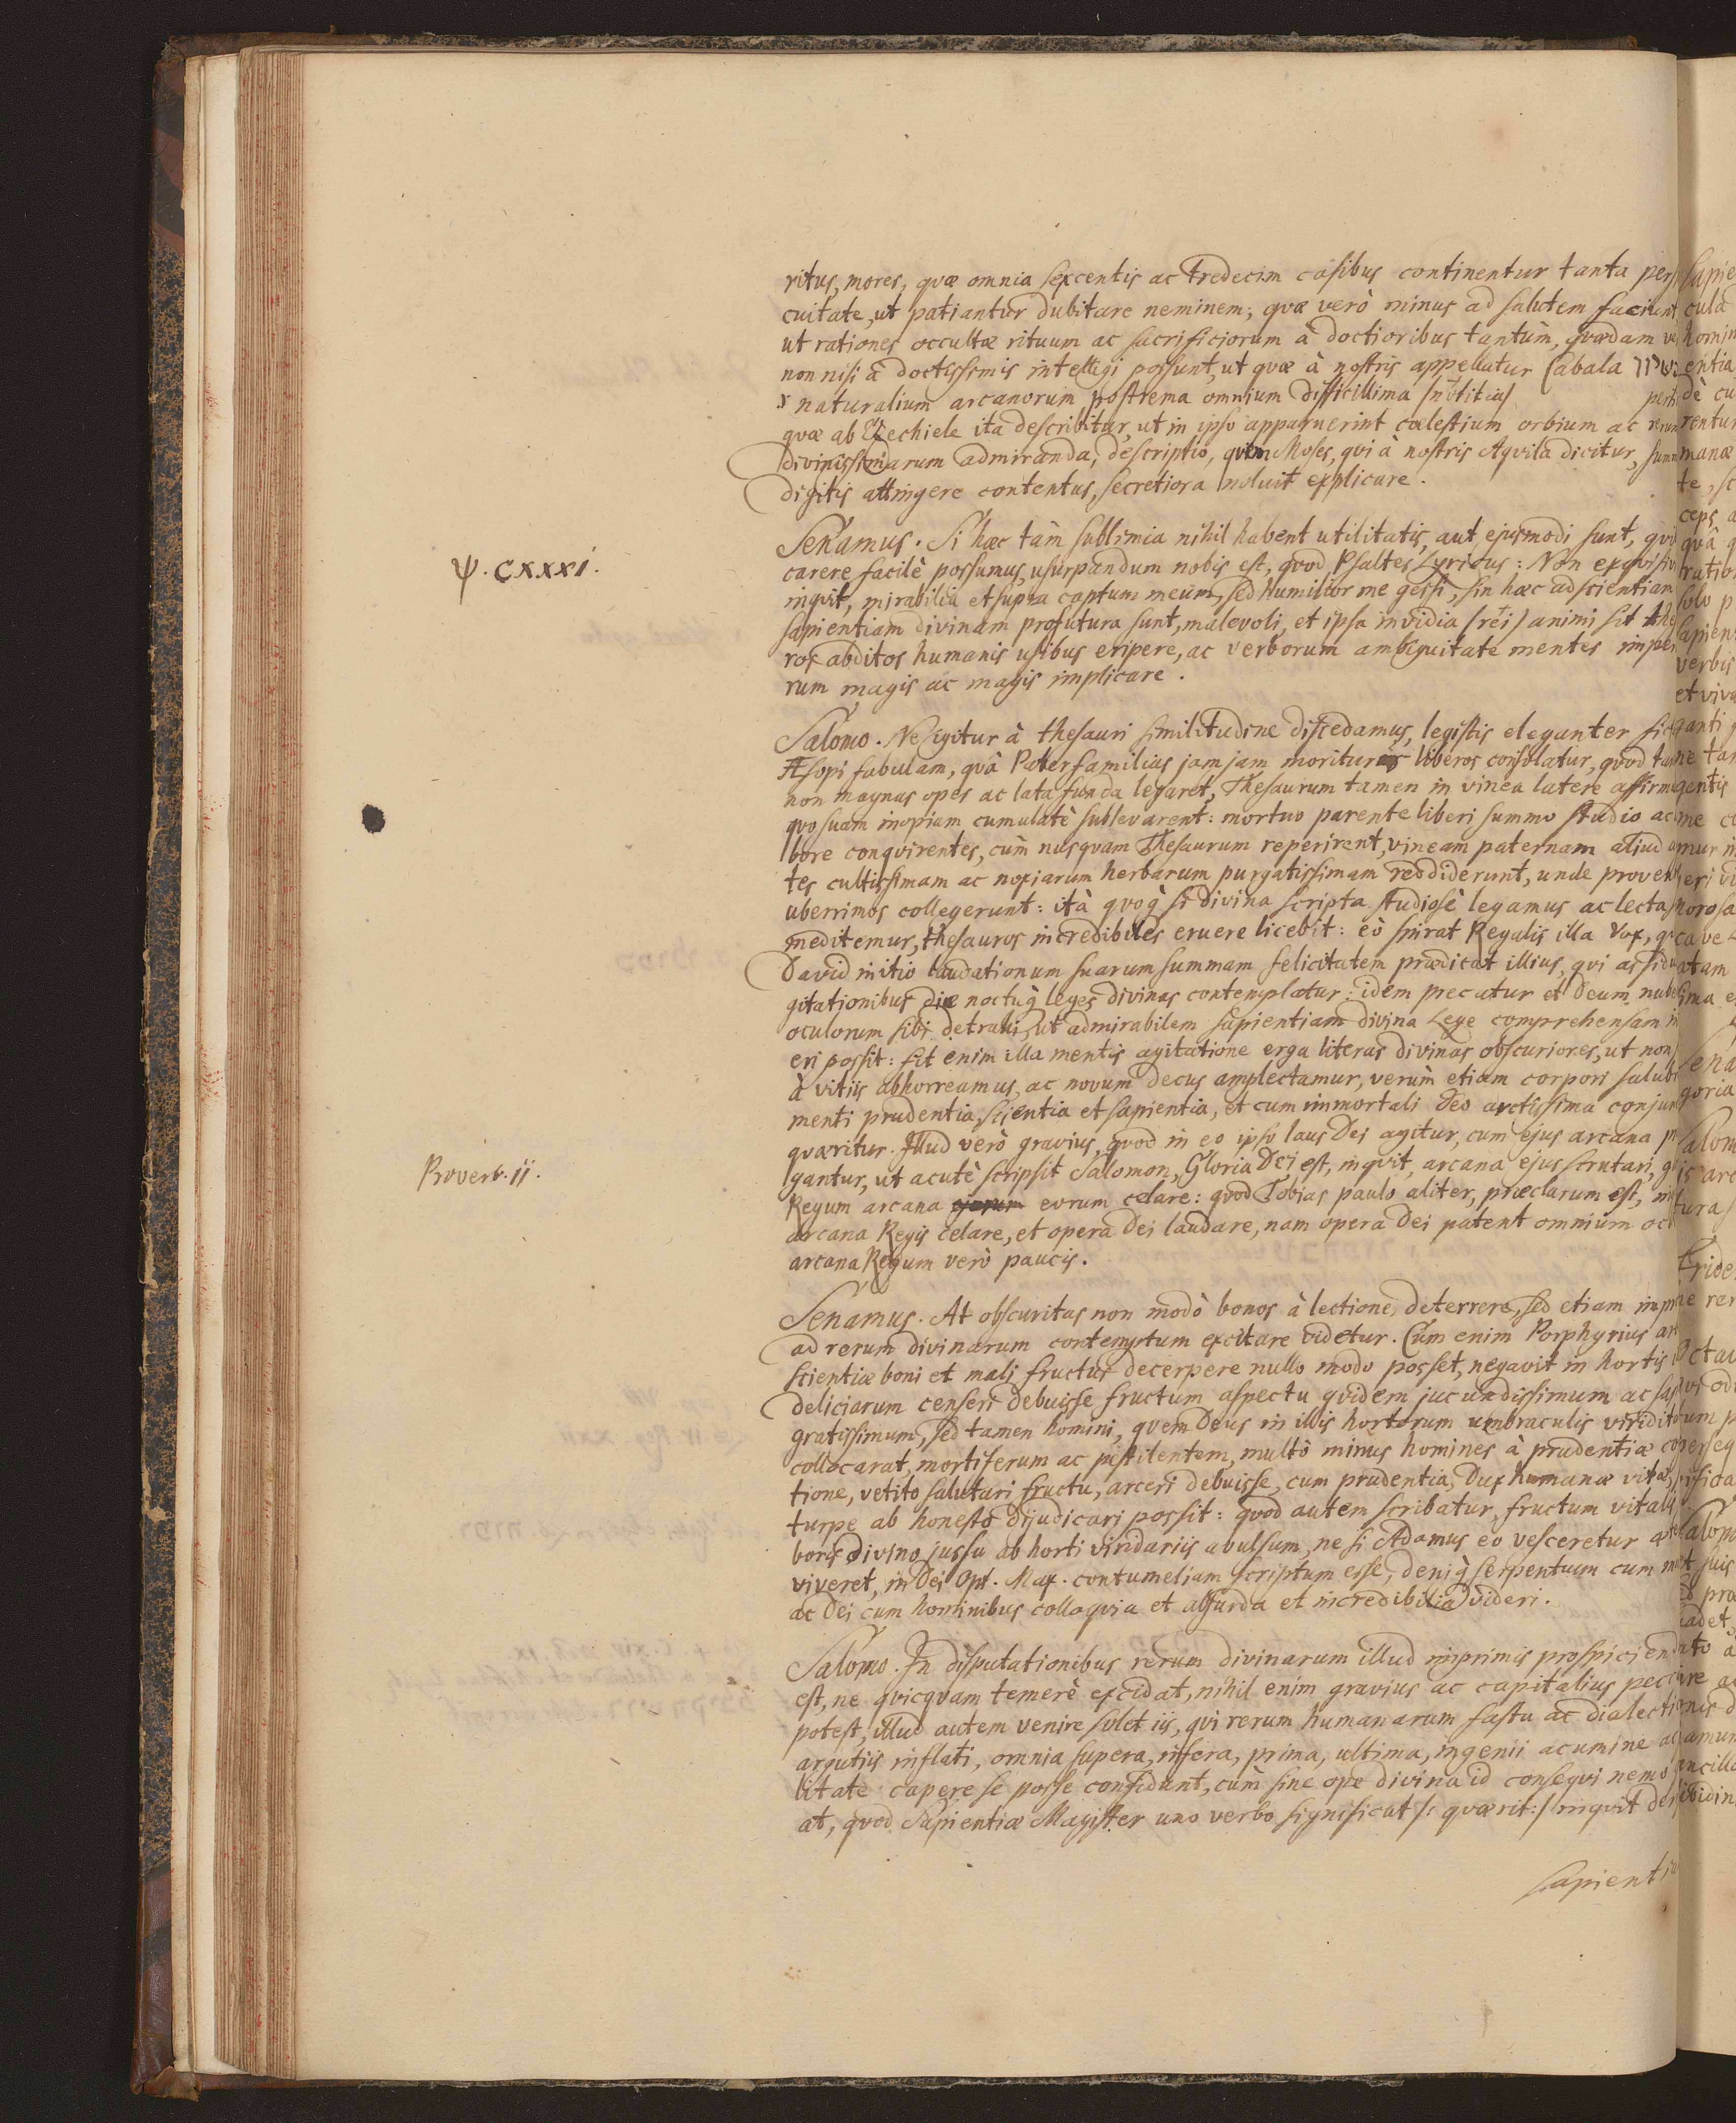 ritus, mores, quæ omnia sexcentis ac tredecim casibus continentur tanta pers
cuitate, ut patiantur dubitare neminem; quæ verò minus ad salutem faciunt
ut rationes occultæ rituum ac sacrificiorum à doctioribus tantùm, quædam ve
non nisi à doctissimis intelligi possunt, ut quæ à nostris appellatur Cabala
naturalium arcanorum postrema omnium difficillima /notitia/
quæ ab Ezechiele ita describitur, ut in ipso apparuerint cœlestium orbium ac rerum
divinissimarum admiranda, descriptio, quem Moses, qui à nostris Aquila dicitur, summ
digitis attingere contentus, secretiora noluit explicare.
Senamus. Si hæc tàm sublimia nihil habent utilitatis, aut ejusmodi sunt, qui
ψ. CXXXI.
carere facilè possumus, usurpandum nobis est, quod Psaltes Lyricus: Non exquisivi
inquit, mirabilia et supra captum meum, sed humilior me gessi, sin hæc ad scientiam
sapientiam divinam profutura sunt, malevoli, et ipsa invidia /rei/ animi sit the
ros abditos humanis usibus eripere, ac verborum ambiguitate mentes imper
rum magis ac magis implicare.
Salomo. Ne igitur à thesauri similitudine discedamus, legistis eleganter fic
Æsopi fabulam, quâ Paterfamilias jamjam moriturus liberos consolatur, quod tam
non magnas opes ac lata funda legaret, Thesaurum tamen in vinea latere affirm
quo suam inopiam cumulatè sublevarent: mortuo parente liberi summo studio ac
bore conquirentes, cùm nusquam Thesaurum reperirent, vineam paternam aliud a
tes cultissimam ac noxiarum herbarum purgatissimam reddiderunt, unde proven
uberrimos collegerunt: ità quoq́ si divina scripta studiosè legamus ac lecta
meditemur, thesauros incredibiles eruere licebit: eò spirat Regalis illa Vox, q
David initio laudationum suarum summam felicitatem prædicat illius, qui assidu
gitationibus die noctuq́ leges divinas contemplatur: idem precatur et Deum, nube
oculorum sibi detrahi, ut admirabilem sapientiam divina Lege comprehensam in
eri possit: fit enim illa mentis agitatione erga literas divinas obscuriores, ut non
à vitiis abhorreamus, ac novum decus amplectamur, verùm etiam corpori salubr
menti prudentia, scientia et sapientia, et cum immortali Deo arctissima conjun
quæritur. Illud verò gravius, quod in eo ipso laus Dei agitur, cum ejus arcana p
Proverb. ii.
gantur, ut acutè scripsit Salomon, Gloria Dei est, inquit, arcana ejus scrutari, g
Regum arcana eorum celare: quod Tobias paulo aliter, præclarum est, in
arcana Regis celare, et opera Dei laudare, nam opera Dei patent omnium oc
arcana Regum verò paucis.
Senamus. At obscuritas non modò bonos à lectione deterrere, sed etiam imp
ad rerum divinarum contemptum excitare videtur. Cùm enim Porphyrius ar
scientiæ boni et mali fructus decerpere nullo modo posset, negavit in hortis
deliciarum censeri debuisse fructum aspectu quidem jucundissimum ac sap
gratissimum, sed tamen homini, quem Deus in illis hortorum umbraculis viridit
collocarat, mortiferum ac pestilentem, multò minus homines à prudentiæ co
tione, vetito salutari fructu, arceri debuisse, cum prudentia, Dux humanæ vitæ,
turpe ab honesto dijudicari possit: quod autem scribatur, fructum vitalis
boris divino jussu ab horti viridariis avulsum, ne si Adamus eo vesceretur æt
viveret, in Dei Opt. Max. contumeliam scriptum esse, deniq́ serpentum cum m
ac Dei cum hominibus colloquia et absurda et incredibilia videri.
Salomo. In disputationibus rerum divinarum illud imprimis prospiciend
est, ne quicquam temerè excidat, nihil enim gravius ac capitalius pecc
potest, illud autem venire solet iis, qui rerum humanarum fastu ac dialecti
argutiis inflati, omnia supera, infera, prima, ultima, ingenii acumine ac
litate capere se posse confidunt, cùm sine ope divina id consequi nemo
at, quod Sapientiæ Magister uno verbo significat /: quærit:/ inquit de
sapientia